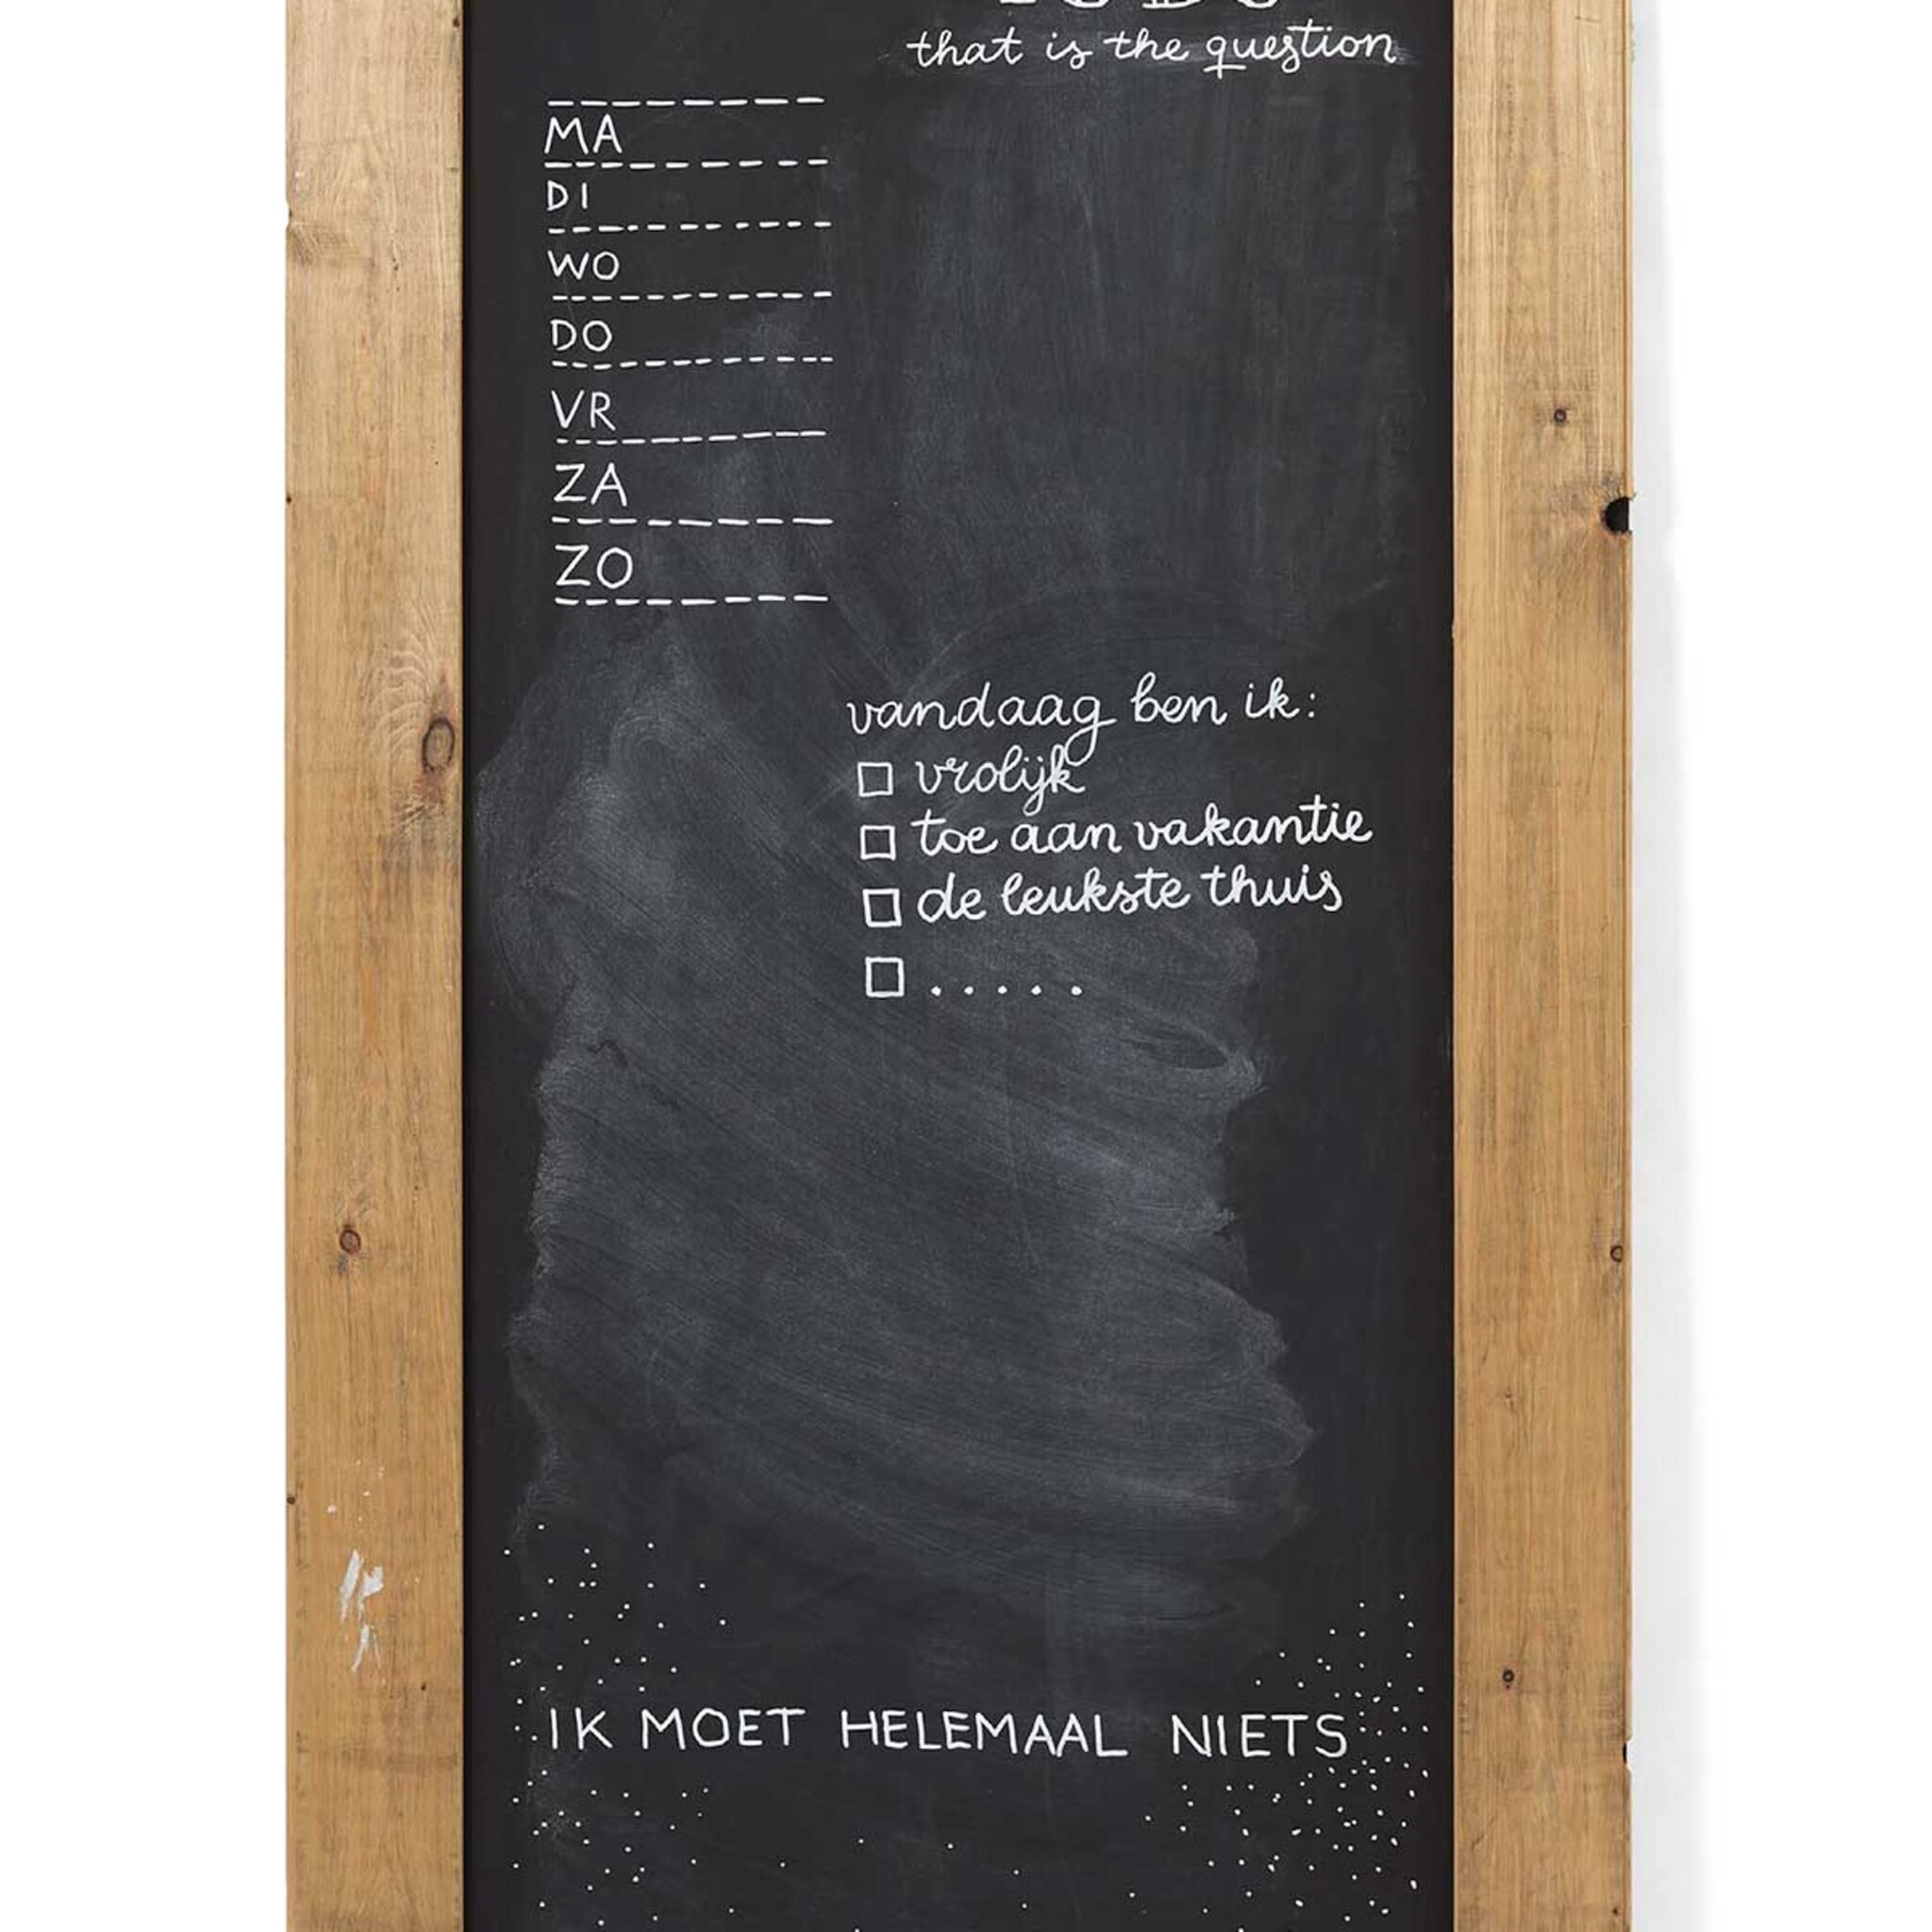 that is the question
MA
DI
WO
DO
VR
ZA
ZO
vandaag ben ik:
vrolijk
toe aan vakantie
de leukste thuis
.....
IK MOET HELEMAAL NIETS